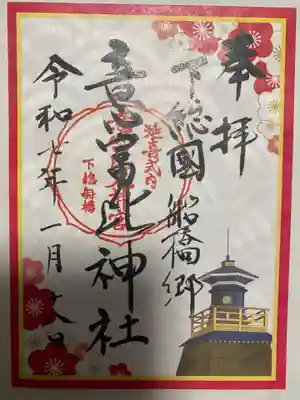 奉拝
下総國船橋郷
意富比神社
令和七年一月六日
延喜式内
下総船橋